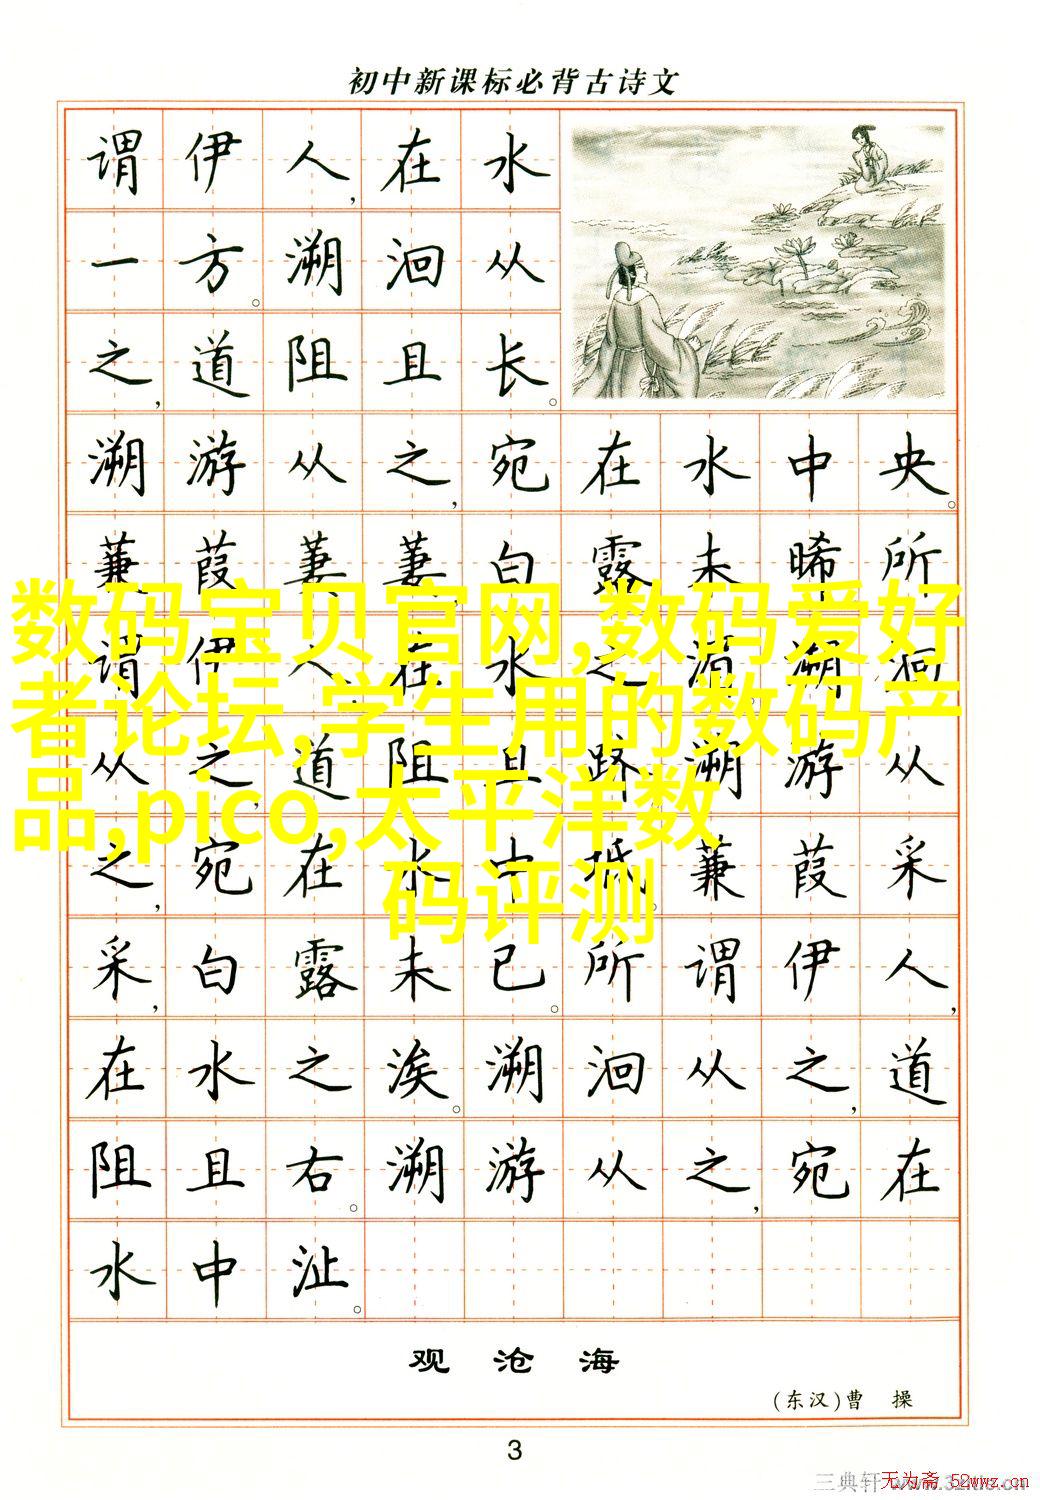 初中新课标必背古诗文
谓伊人，在水
一方。溯洄从
之，道阻且长。
溯游从之，宛在水中央。
蒹葭萋萋，白露未晞。所
数码宝贝官网,数码爱好
谓伊人，在水之湄。溯洄
者论坛,学生用的数码产
从之，道阻且跻。溯游从
品,pico,太平洋数
之，宛在水中坻。蒹葭采
码评测
采，白露未已。所谓伊人，
在水之涘。溯洄从之，道
阻且右。溯游从之，宛在
水中沚。
观沧海
(东汉)曹操
3
三典轩
无为斋 52wwz.cn